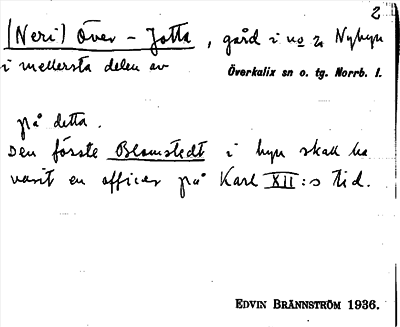 2
(Neri) Över-Jotta, gård i no 2 Nybyn
i mellersta delen av
Överkalix sn o. tg. Norrb. l.
på detta.
Den förste Blomstedt i byn skall ha
varit en officer på Karl XII:s tid.
EDVIN BRÄNNSTRÖM 1936.